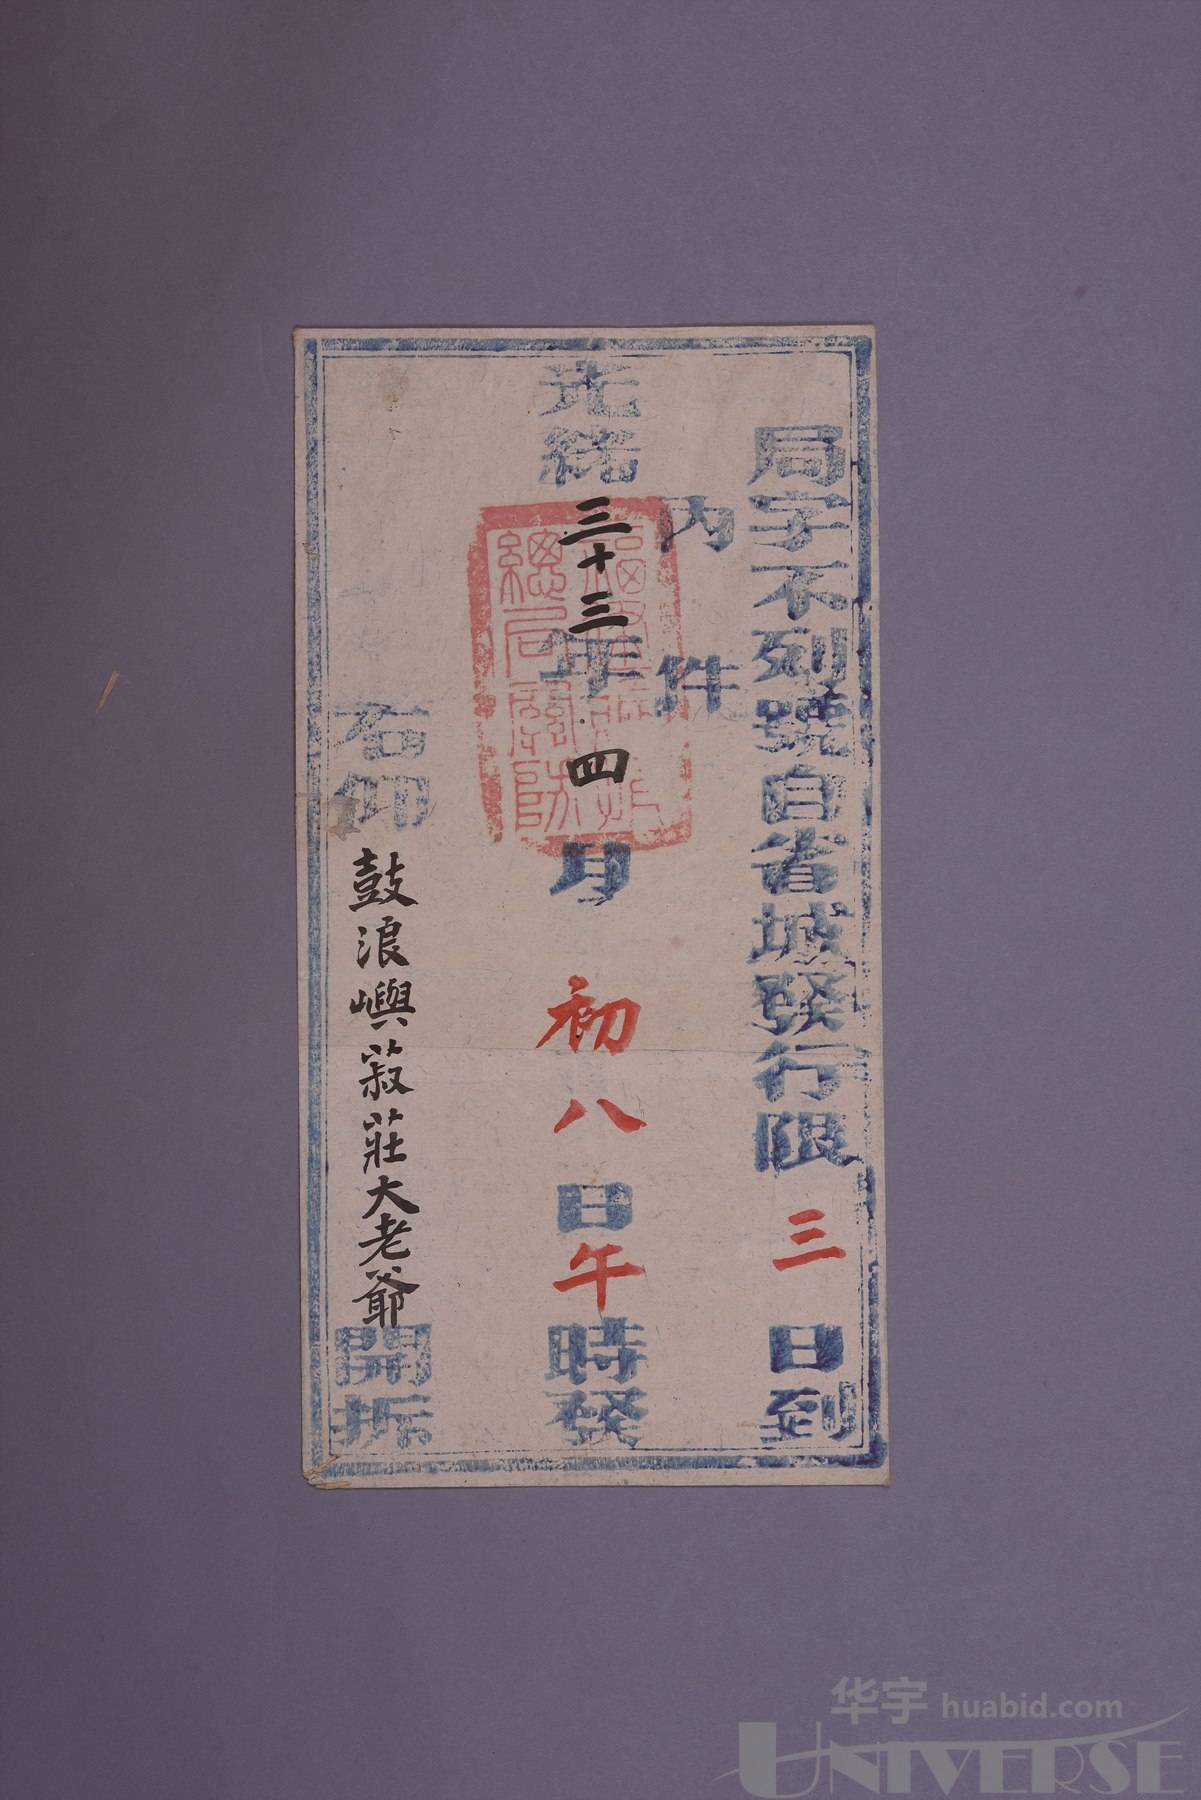 局字不列號自省城發行限三日到
內件
光緒三十三年四月初八日午時發
右仰鼓浪嶼菽莊大老爺開拆
華宇 huabid.com
UNIVERSE